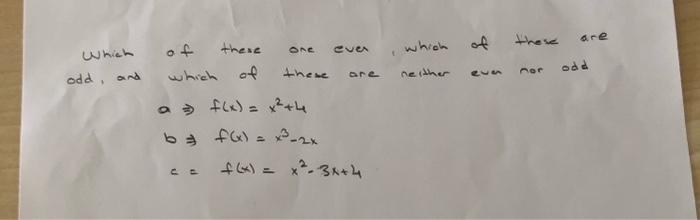 Which of these one even, which of these are
odd, and which of these are neither even nor odd
a ⇒ f(x) = x²+4
b ⇒ f(x) = x³-2x
c = f(x) = x²-3x+4